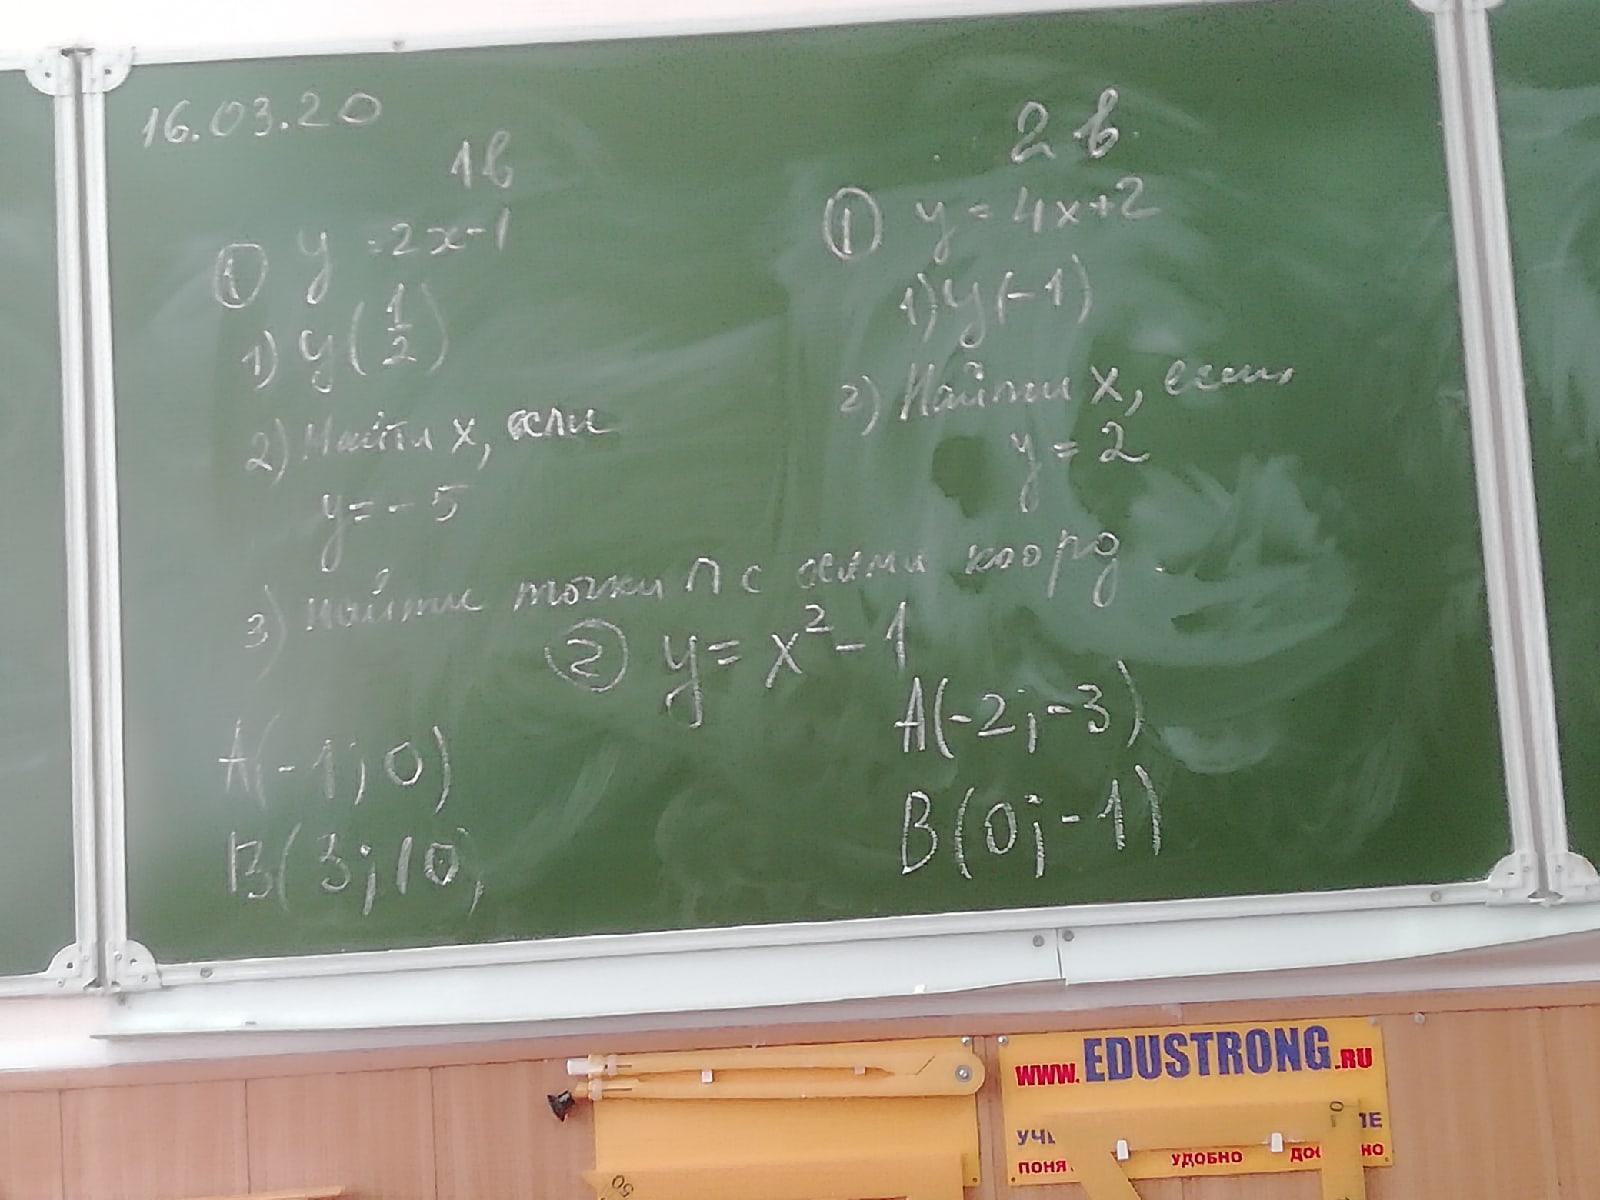 16.03.20
1в
① y = 2x-1
1) y(1/2)
2) Найти x, если
y = -5
2в.
① y = 4x+2
1) y(-1)
2) Найти x, если
y = 2
3) Найти точки ∩ с осями коорд.
② y = x² - 1
A(-1; 0)
B(3; 10)
A(-2; -3)
B(0; -1)
WWW.EDUSTRONG.RU
УЧЕ
ПОНЯ УДОБНО ДОС НО
50
0